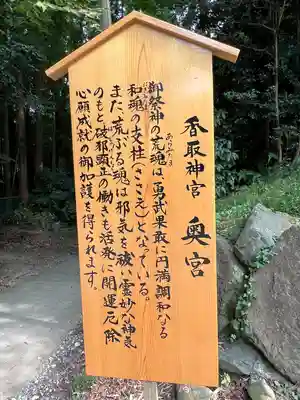 香取神宮 奥宮
御祭神の荒魂は、勇武果敢に円満調和なる
和魂の支柱(ささえ)となっている。
また、荒ぶる魂は邪気を祓い霊妙な神氣
のもと破邪顕正の働きも活発に開運厄除
心願成就の御加護を得られます。